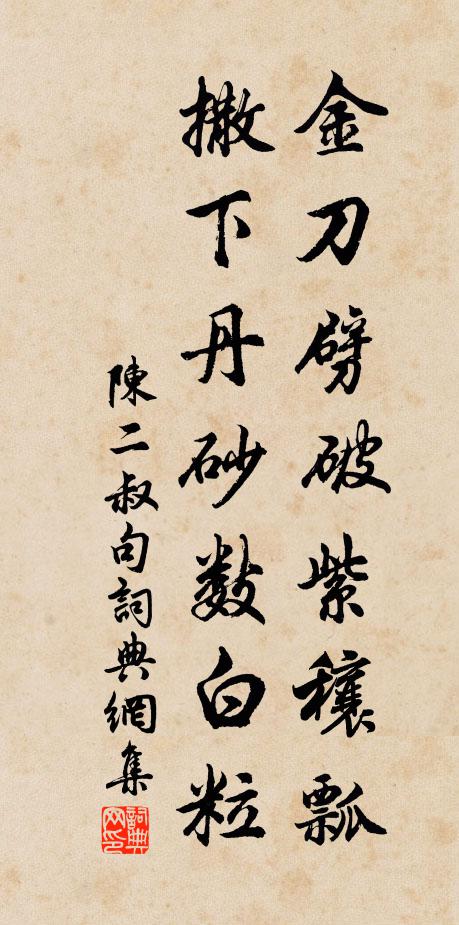 金刀劈破紫穰瓢
撒下丹砂數白粒
陳二叔句詞典網集
詞典網印